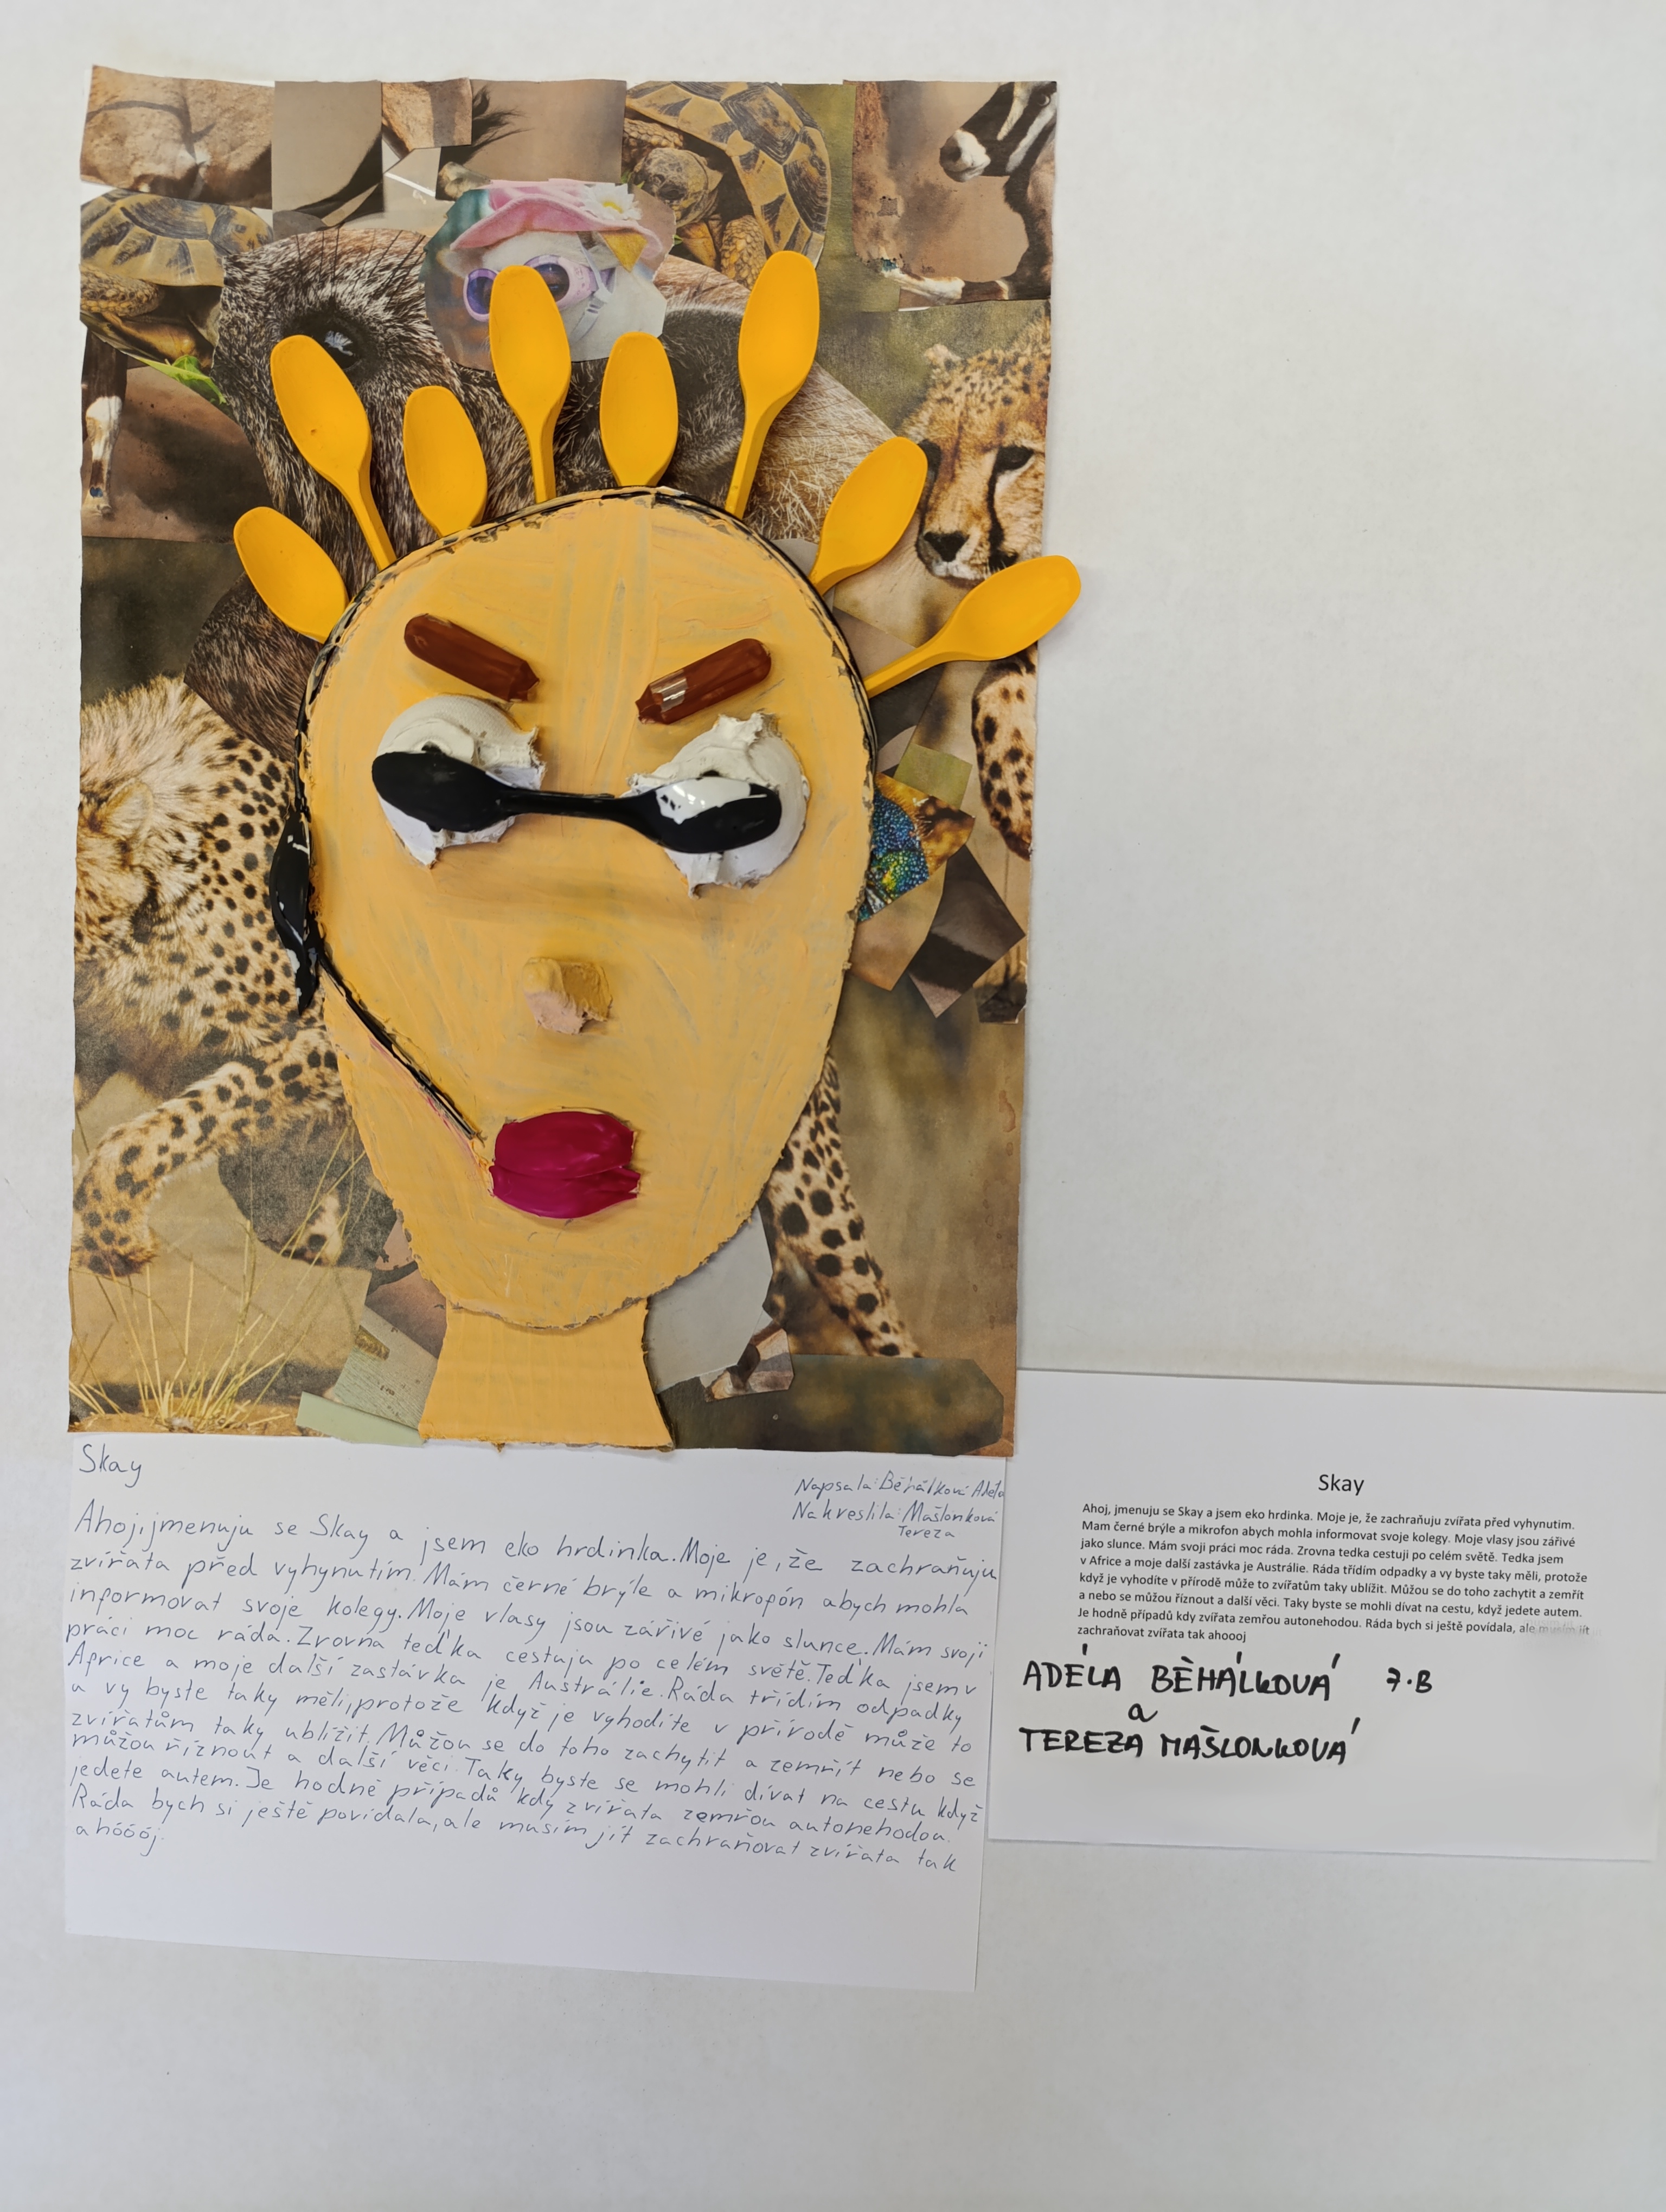 Skay
Napsala: Běhálková Adéla
Nakreslila: Mašlonková
Tereza
Ahoj, jmenuju se Skay a jsem eko hrdinka. Moje je, že zachraňuju
zvířata před vyhynutím. Mám černé brýle a mikropón abych mohla
informovat svoje kolegy. Moje vlasy jsou zářivé jako slunce. Mám svoji
práci moc ráda. Zrovna teďka cestuju po celém světě. Teďka jsem v
Africe a moje další zastávka je Austrálie. Ráda třídím odpadky
a vy byste taky měli, protože když je vyhodíte v přírodě může to
zvířatům taky ublížit. Můžou se do toho zachytit a zemřít nebo se
můžou říznout a další věci. Taky byste se mohli dívat na cestu když
jedete autem. Je hodně případů kdy zvířata zemřou autonehodou.
Ráda bych si ještě povídala, ale musím jít zachraňovat zvířata tak
ahóóój.
Skay
Ahoj, jmenuju se Skay a jsem eko hrdinka. Moje je, že zachraňuju zvířata před vyhynutim.
Mam černé brýle a mikrofon abych mohla informovat svoje kolegy. Moje vlasy jsou zářivé
jako slunce. Mám svoji práci moc ráda. Zrovna tedka cestuji po celém světě. Tedka jsem
v Africe a moje další zastávka je Austrálie. Ráda třídím odpadky a vy byste taky měli, protože
když je vyhodíte v přírodě může to zvířatům taky ublížit. Můžou se do toho zachytit a zemřít
a nebo se můžou říznout a další věci. Taky byste se mohli dívat na cestu, když jedete autem.
Je hodně případů kdy zvířata zemřou autonehodou. Ráda bych si ještě povídala, ale musím jít
zachraňovat zvířata tak ahoooj
ADÉLA BĚHÁLKOVÁ 7.B
a
TEREZA MAŠLONKOVÁ